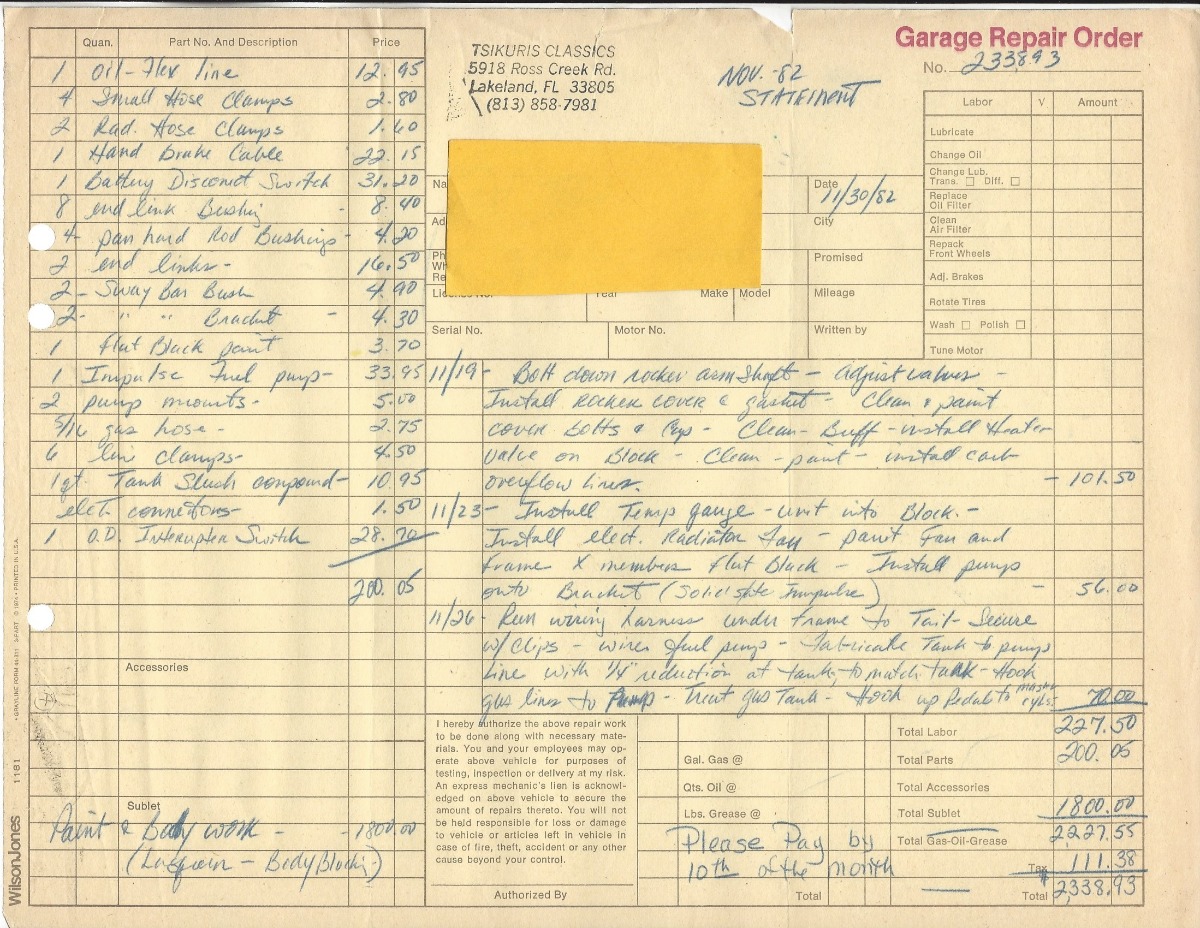 Garage Repair Order
No. 233893
TSIKURIS CLASSICS
5918 Ross Creek Rd.
Lakeland, FL 33805
(813) 858-7981
NOV. -82
STATEMENT
Quan. Part No. And Description Price
1 Oil-Flex line 12.95
4 Small Hose Clamps 2.80
2 Rad. Hose Clamps 1.60
1 Hand Brake Cable 22.15
1 Battery Disconect Switch 31.20
8 end link Bushing - 8.40
4- pan hard Rod Bushings- 4.20
2 end links- 16.50
2- Sway Bar Bush 4.90
2- " " Bracket - 4.30
1 flat Black paint 3.70
1 Impulse Fuel pump- 33.95
2 pump mounts- 5.00
5/16 gas hose- 2.75
6 line clamps- 4.50
1qt. Tank Slush compound- 10.95
elect. connectors- 1.50
1 O.D. Interupter Switch 28.70
200.05
Accessories
Sublet
Paint & Body work - -1800.00
Labor √ Amount
Lubricate
Change Oil
Change Lub.
Trans. Diff.
Replace
Oil Filter
Clean
Air Filter
Repack
Front Wheels
Adj. Brakes
Rotate Tires
Wash Polish
Tune Motor
Date
11/30/82
City
Promised
License No. Year Make Model Mileage
Serial No. Motor No. Written by
11/19- Bolt down rocker arm Shaft - Adjust valves -
Install Rocker cover & gasket - Clean & paint
cover bolts & Cap - Clean- Buff - install Heater
Valve on Block - Clean - paint - install carb
overflow lines. - 101.50
11/23- Install Temp gauge - unit into Block. -
Install elect. Radiator Fan - paint Fan and
Frame X members Flat Black - Install pump
onto Bracket (Solid state Impulse) - 56.00
11/26- Run wiring harness under frame to Tail- Secure
w/Clips - wires fuel pump - Fabricate Tank to pump
line with 1/4" reduction at tank to match tank - Hook
gas lines to Pump - Treat gas Tank - Hook up Pedals to master cyls. 70.00
I hereby authorize the above repair work
to be done along with necessary mate-
rials. You and your employees may op-
erate above vehicle for purposes of
testing, inspection or delivery at my risk.
An express mechanic's lien is acknowl-
edged on above vehicle to secure the
amount of repairs thereto. You will not
be held responsible for loss or damage
to vehicle or articles left in vehicle in
case of fire, theft, accident or any other
cause beyond your control.
Authorized By
Gal. Gas @
Qts. Oil @
Lbs. Grease @
Please Pay by
10th of the month
Total
Total Labor 227.50
Total Parts 200.05
Total Accessories
Total Sublet 1800.00
Total Gas-Oil-Grease 2227.55
Tax 111.38
Total $2338.93
WilsonJones 1181 • GRAYLINE FORM 44-311 3-PART © 1974 • PRINTED IN U.S.A.